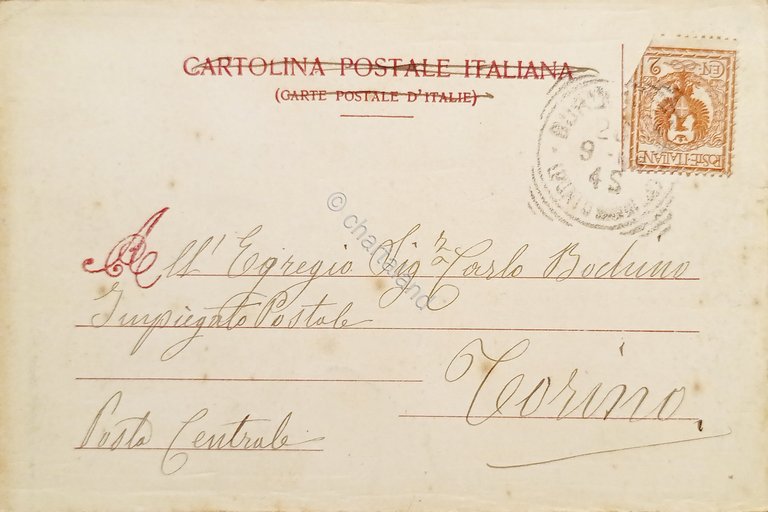 CARTOLINA POSTALE ITALIANA
(CARTE POSTALE D'ITALIE)
CENT. 2
POSTE·ITALIANE
9
45
© chartaland
All' Egregio Sigr Carlo Boduino
Impiegato Postale
Torino
Posta Centrale